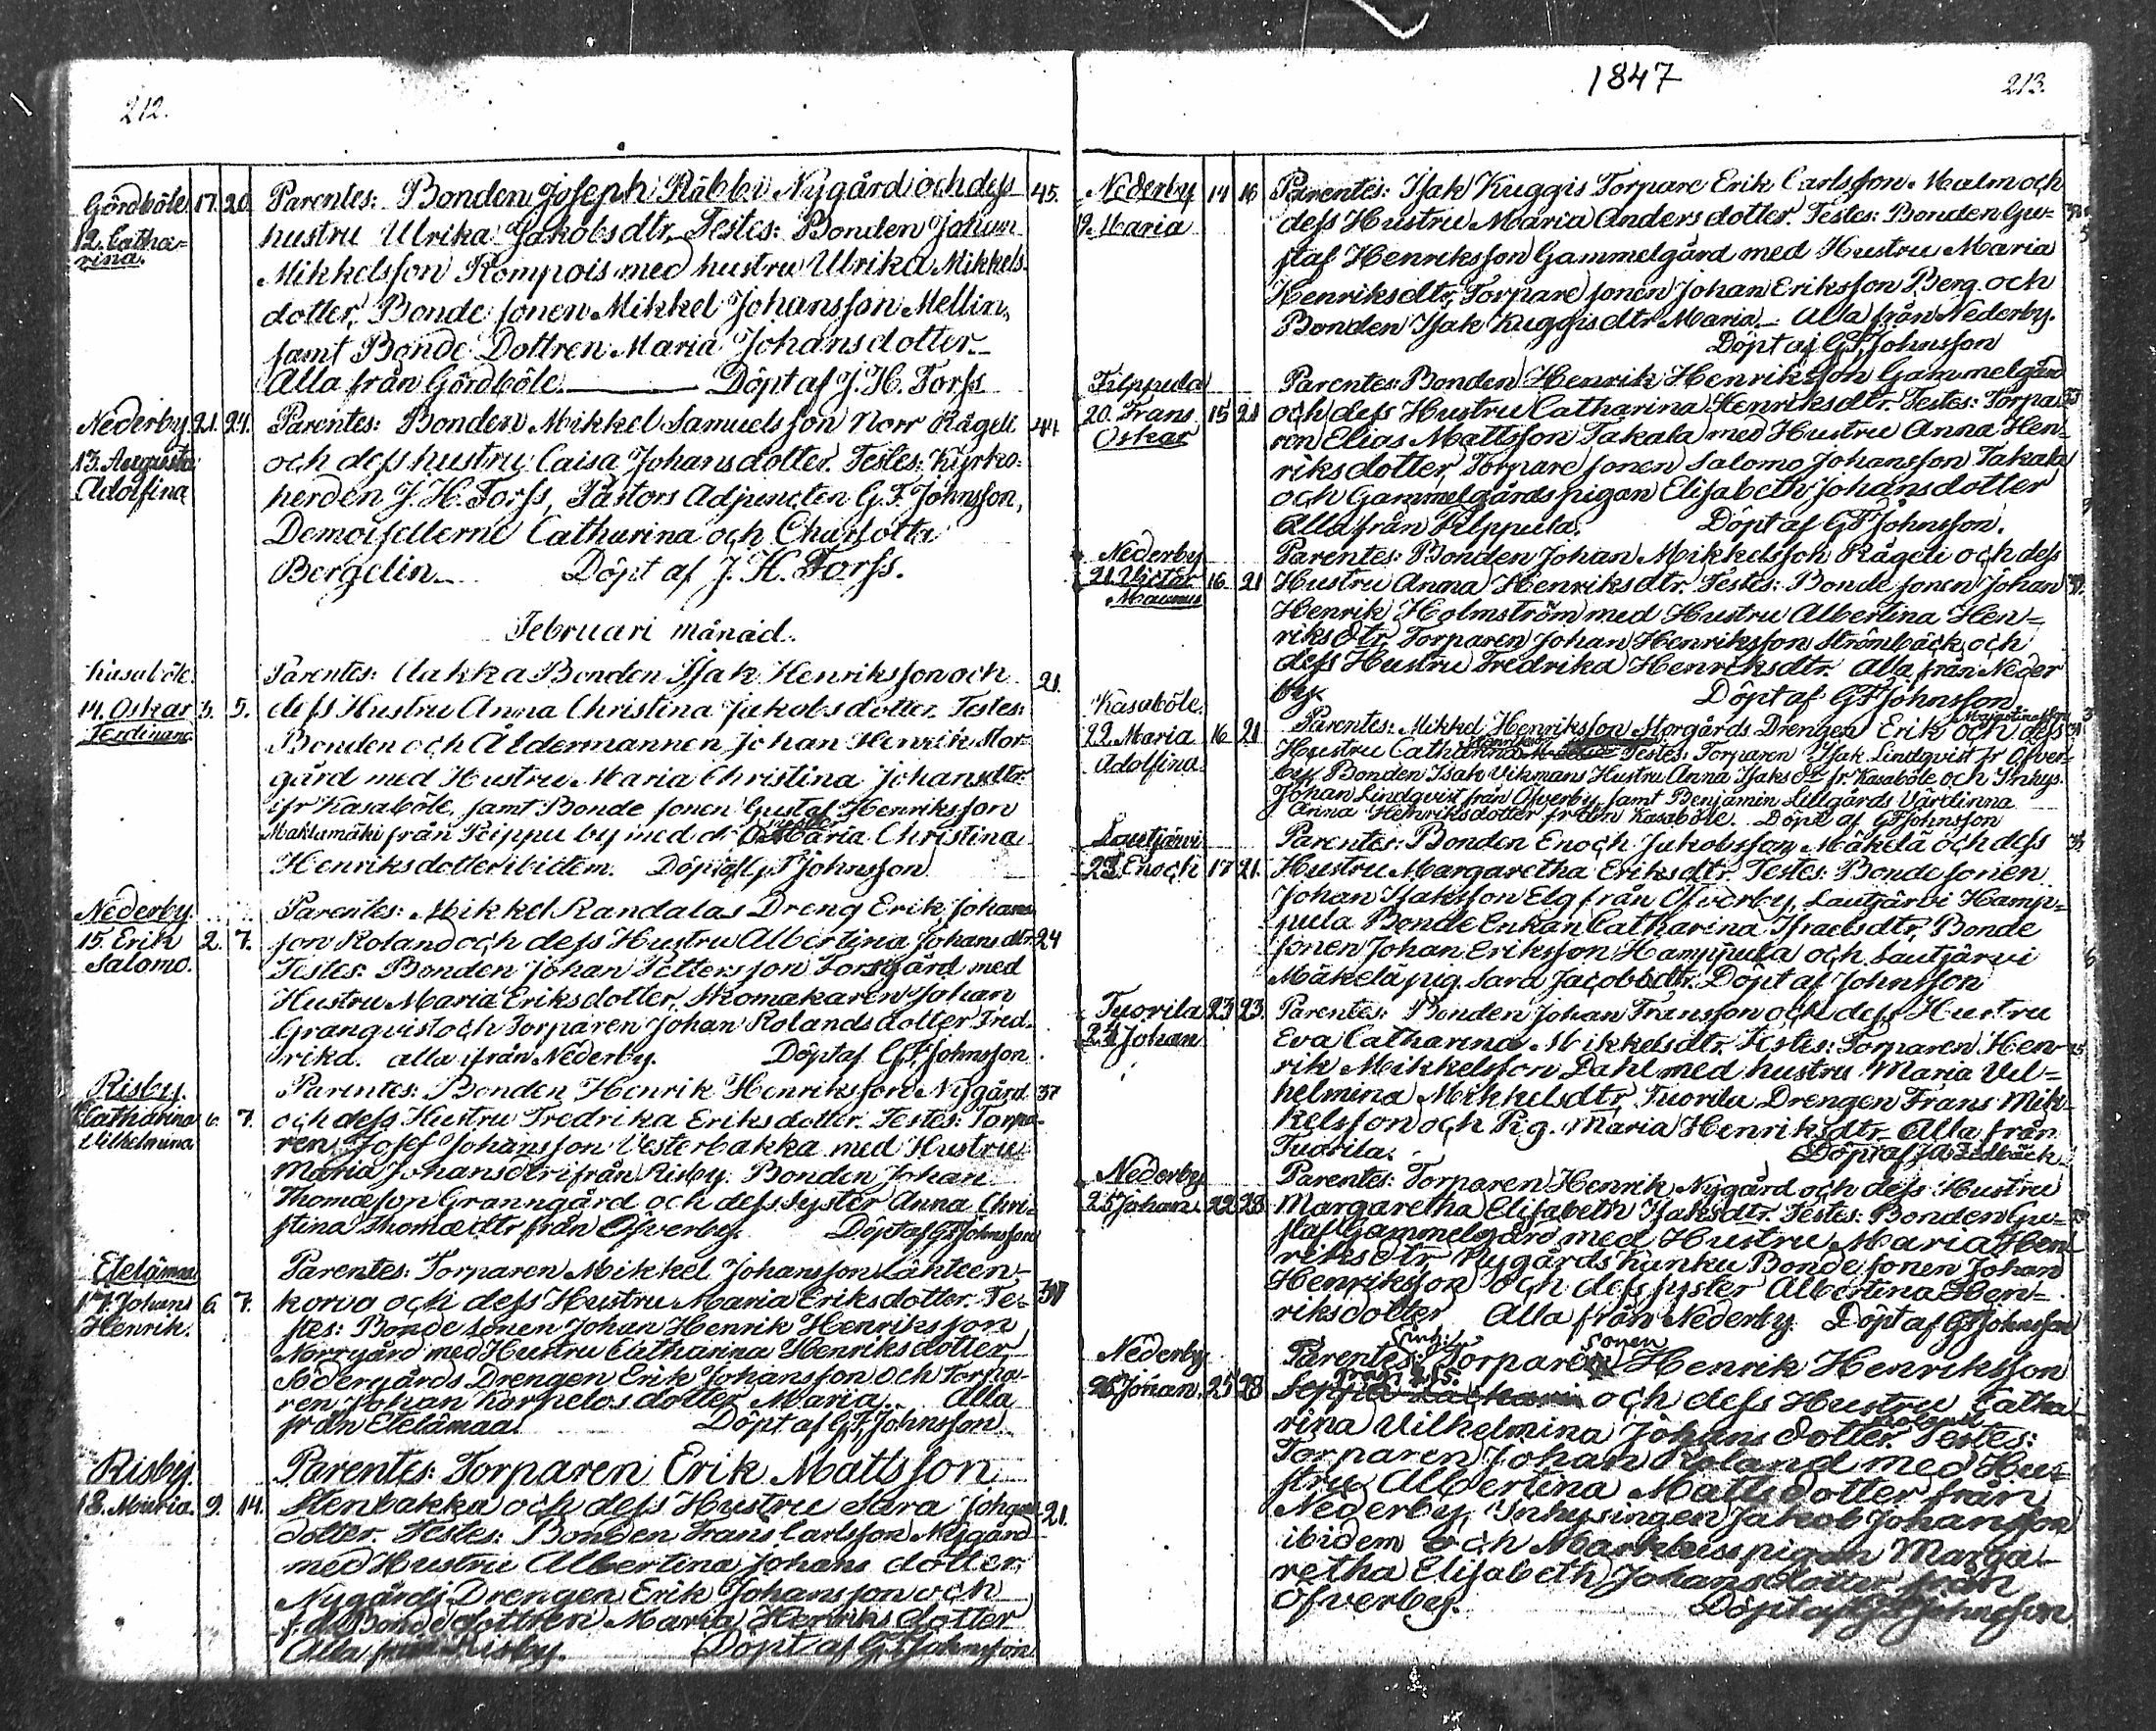 212.
Gördböle 17. 20. Parentes: Bonden Joseph Räbbi Nygård och dess 45.
12. Catha= hustru Ulrika Jakobsdtr. Testes: Bonden Johan
rina. Mikkelsson Kompois med hustru Ulrika Mikkels
dotter, Bonde sonen Mikkel Johansson Mellin,
samt Bonde Dottren Maria Johansdotter.
Alla från Gördböle. Döpt af J. H. Forss
Nederby 21. 24. Parentes: Bonden Mikkel Samuelsson Norr Rågeli 44
13. Augusta och dess hustru Caisa Johansdotter. Testes: Kyrko=
Adolfina herden J. H. Forss, Pastors Adjuncten G. F. Johnsson,
Demoisellerne Catharina och Charlotta
Bergelin Döpt af J. H. Forss.
Februari månad.
Kasaböle Parentes: Aakka Bonden Isak Henriksson och 21.
14. Oskar 3. 5. dess Hustru Anna Christina Jakobsdotter. Testes:
Ferdinand Bonden och Åldermannen Johan Henrik Stor=
gård med Hustru Maria Christina Johansdtr
ifr Kasaböle, samt Bonde sonen Gustaf Henriksson
från Peippu by med Maria Christina
Henriksdotter ibidem. Döpt af G F Johnsson
Nederby Parentes: Mikkel Randalas Dreng Erik Johans
15. Erik 2. 7. son Roland och dess Hustru Albertina Johansdtr 24
Salomo. Testes: Bonden Johan Pettersson Forsgård med
Hustru Maria Eriksdotter, Skomakaren Johan
Granqvist och Torparen Johan Rolands dotter Fred=
rika. alla ifrån Nederby. Döpt af G. F. Johnsson
Risby. Parentes: Bonden Henrik Henriksson Nygård 37
Catharina 6. 7. och dess Hustru Fredrika Eriksdotter. Testes: Torpa=
Vilhelmina ren Josef Johansson Vesterbakka med Hustru
Maria Johansdtr ifrån Risby. Bonden Johan
Thomasson Granngård och dess syster Anna Chri=
stina Thomædtr från Ofverby. Döpt af GF Johnsson
Etelämaa Parentes: Torparen Mikkel Johansson Lähteen=
17. Johan 6. 7. korva och dess Hustru Maria Eriksdotter. Te=
Henrik. stes: Bonde sonen Johan Henrik Henriksson
Norrgård med Hustru Catharina Henriksdotter
Södergårds Drengen Erik Johansson och Torpa=
ren Johan Korpelos dotter Maria. Alla
från Etelämaa. Döpt af G. F. Johnsson
Risby. Parentes: Torparen Erik Mattsson
18. Maria. 9. 14. Stenbakka och dess Hustru Sara Johans 21.
dotter. Testes: Bonden Frans Carlsson Nygård
med Hustru Albertina Johans dotter,
Nygårds Drengen Erik Johansson och
Bonde dottren Maria Henriksdotter
Alla från Risby. Döpt af G F Johnsson
1847
213.
Nederby 14 16 Parentes: Isak Kuggis Torpare Erik Carlsson Malm och
19. Maria dess Hustru Maria Andersdotter. Testes: Bonden Gu=
staf Henriksson Gammelgård med Hustru Maria
Henriksdtr, Torpare sonen Johan Eriksson Berg och
Bonden Isak Kuggis dtr Maria. Alla från Nederby.
Döpt af G F Johnsson
Filppula Parentes: Bonden Henrik Henriksson Gammelgård
20. Frans 15 21 och dess Hustru Catharina Henriksdtr. Testes: Torpa
Oskar ren Elias Mattsson Takala med Hustru Anna Hen=
riksdotter, Torpare sonen Salomo Johansson Takala
och Gammelgårds pigan Elisabeth Johansdotter
Alla från Filppula. Döpt af GF Johnsson.
Nederby Parentes: Bonden Johan Mikkelsson Rågeli och dess
21. Victor 16 21 Hustru Anna Henriksdtr. Testes: Bonde sonen Johan
Maunus Henrik Holmström med Hustru Albertina Hen=
riksdtr, Torparen Johan Henriksson Strömbäck och
dess Hustru Fredrika Henriksdtr. Alla från Neder
by. Döpt af GF Johnsson
Kasaböle.
22. Maria 16 21 Parentes: Mikkel Henriksson Storgårds Drengen Erik och dess
Adolfina Hustru Catharina Testes: Torparen Isak Lindqvist fr Ofver=
by, Bonden Isak Vikmans Hustru Anna Isaksdtr fr Kasaböle och Inhys.
Johan Lindqvist från Ofverby samt Benjamin Lillgårds Värdinna
Anna Henriksdotter från Kasaböle. Döpt af GF Johnsson
Lautjärvi Parentes: Bonden Enoch Jakobsson Mäkelä och dess
23. Enoch 17 21. Hustru Margaretha Eriksdtr. Testes: Bonde sonen
Johan Isaksson Elg från Ofverby, Lautjärvi Hamp=
pula Bonde Enkan Catharina Israelsdtr, Bonde
sonen Johan Eriksson Hamppula och Lautjärvi
Mäkelä pig. Sara Jacobsdtr. Döpt af Johnsson
Tuorila 23 23. Parentes: Bonden Johan Fransson och dess Hustru
24 Johan Eva Catharina Mikkelsdtr. Testes: Torparen Hen=
rik Mikkelsson Dahl med hustru Maria Vil=
helmina Mikkelsdtr, Tuorila Drengen Frans Mik=
kelsson och Pig. Maria Henriksdtr. Alla från
Tuorila. Döpt af
Nederby Parentes: Torparen Henrik Nygård och dess Hustru
25 Johan 22 28 Margaretha Elisabeth Isaksdtr. Testes: Bonden Gu=
staf Gammelgård med Hustru Maria Hen=
riksdtr, Nygårds Kunku Bonde sonen Johan
Henriksson och dess syster Albertina Hen=
riksdotter Alla från Nederby. Döpt af GF Johnsson
Nederby Parentes: Torpare sonen Henrik Henriksson
26 Johan 25 28 och dess Hustru Catha=
rina Vilhelmina Johans dotter. Testes:
Torparen Johan Roland med Hu=
stru Albertina Mattsdotter från
Nederby, Inhysingen Jakob Johansson
ibidem och pigan Marga=
retha Elisabeth Johansdotter från
Ofverby. Döpt af G F Johnsson